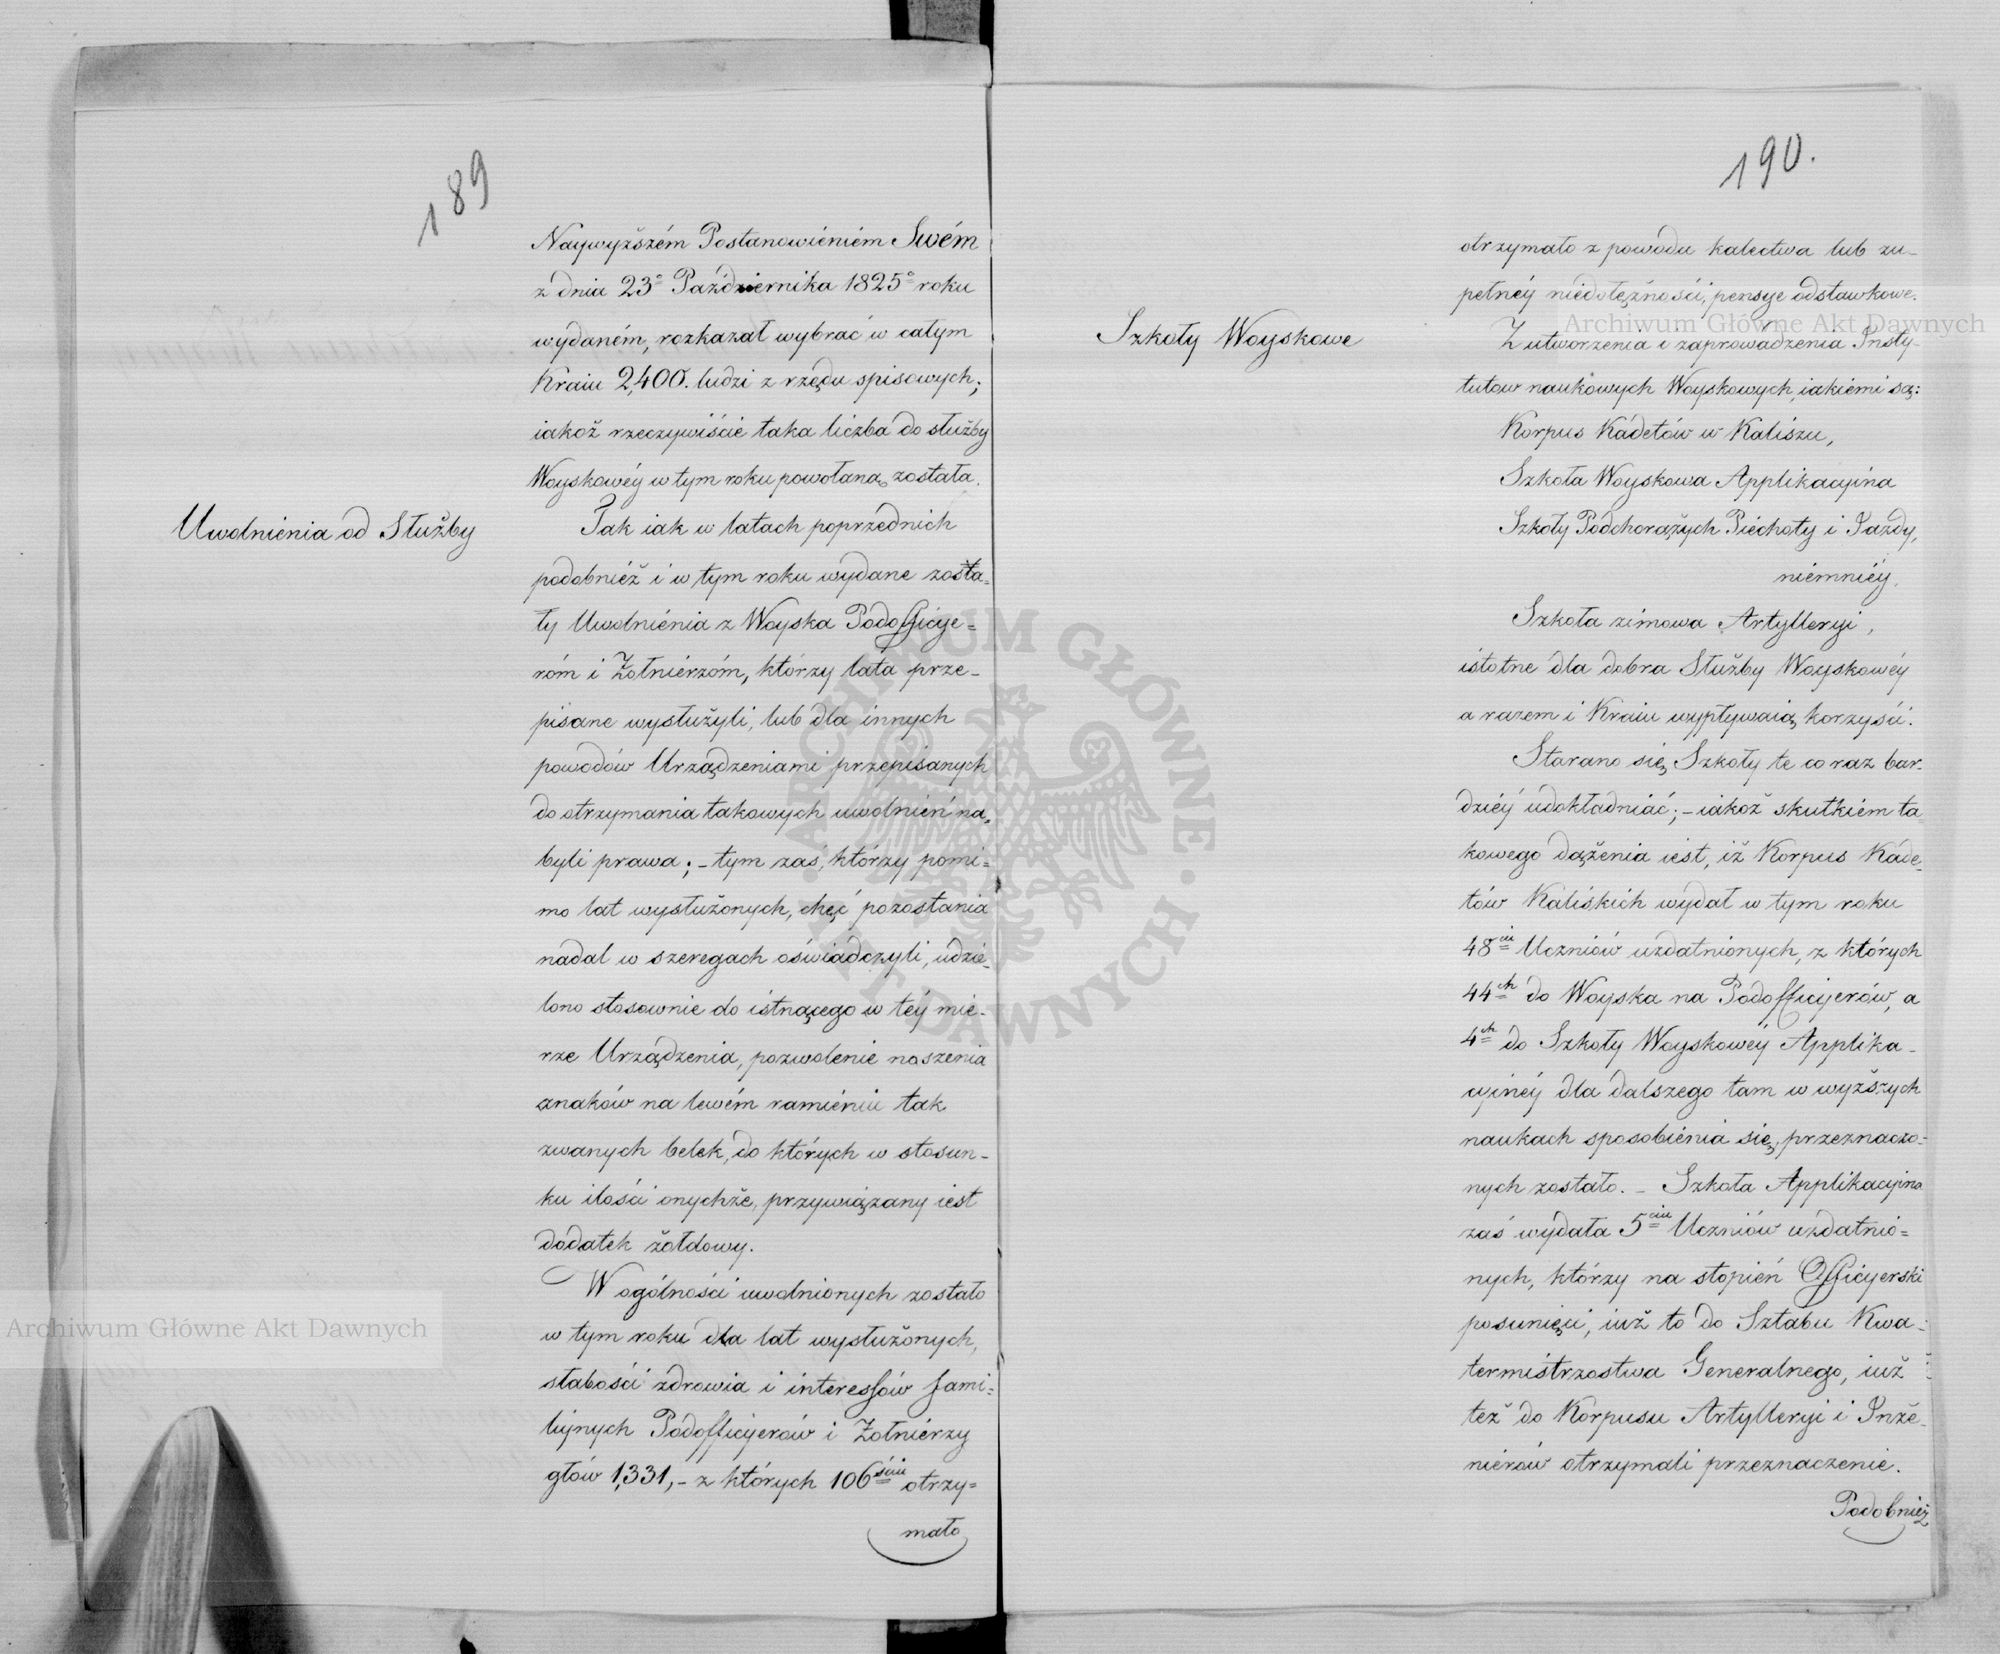 189
Naywyższém Postanowiéniém Swém
z dnia 23º Października 1825º roku
wydaném, rozkazał wybrać w całym
Kraiu 2,400. ludzi z rzędu spisowych;
iakoż rzeczywiście taka liczba do służby
Woyskowéy w tym roku powołaną została.
Uwolnienia od Służby
Jak iak w latach poprzednich
podobniéż i w tym roku wydane zosta=
ły Uwolniénia z Woyska Podofficye=
róm i Żołniérzóm, którzy lata prze-
pisane wysłużyli, lub dla innych
powodów Urządzeniami przepisanych
do otrzymania takowych uwolnień na=
byli prawa; – tym zaś, którzy pomi=
mo lat wysłużonych, chęć pozostania
nadal w szeregach oświadczyli, udzie=
lono stosownie do istnącego w téy mie-
rze Urządzenia, pozwolenie noszenia
znaków na lewém ramiéniu tak
zwanych belek, do których w stosun-
ku ilości onychże, przywiązany iest
dodatek żołdowy.
W ogólności uwolnionych zostało
w tym roku dla lat wysłużonych,
słabości zdrowia i interessów fami=
liynych Podofficyerów i Żołniérzy
głów 1,331, – z których 106ściu otrzy=
mało
190.
otrzymało z powodu kalectwa lub zu-
pełnéy niedołężności, pensye odstawkowe.
Szkoły Woyskowe
Z utworzenia i zaprowadzenia Insty-
tutow naukowych Woyskowych, iakiemi są:
Korpus Kadetów w Kaliszu,
Szkoła Woyskowa Applikacyina
Szkoły Podchorążych Piéchoty i Jazdy,
niemniéy,
Szkoła zimowa Artylleryi,
istotne dla dobra Służby Woyskowéy
a razem i Kraiu wypływaią korzyści.
Starano się Szkoły te co raz bar-
dziéy udokładniać; – iakoż skutkiém ta
kowego dążenia iest, iż Korpus Kade-
tów Kaliskich wydał w tym roku
48iu Uczniów uzdatnionych, z których
44ch do Woyska na Podofficyerów, a
4ch do Szkoły Woyskowéy Applika-
cyinéy dla dalszego tam w wyższych
naukach sposobiénia się, przeznaczo=
nych zostało. – Szkoła Applikacyina
zaś wydała 5ciu Uczniów uzdatnio=
nych, którzy na stopień Officyerski
posunięci, iuż to do Sztabu Kwa=
termistrzostwa Generalnego, iuż
też do Korpusu Artylleryi i Inże-
nierów otrzymali przeznaczenie.
Podobnież
Archiwum Główne Akt Dawnych
Archiwum Główne Akt Dawnych
ARCHIWUM GŁÓWNE · AKT DAWNYCH ·